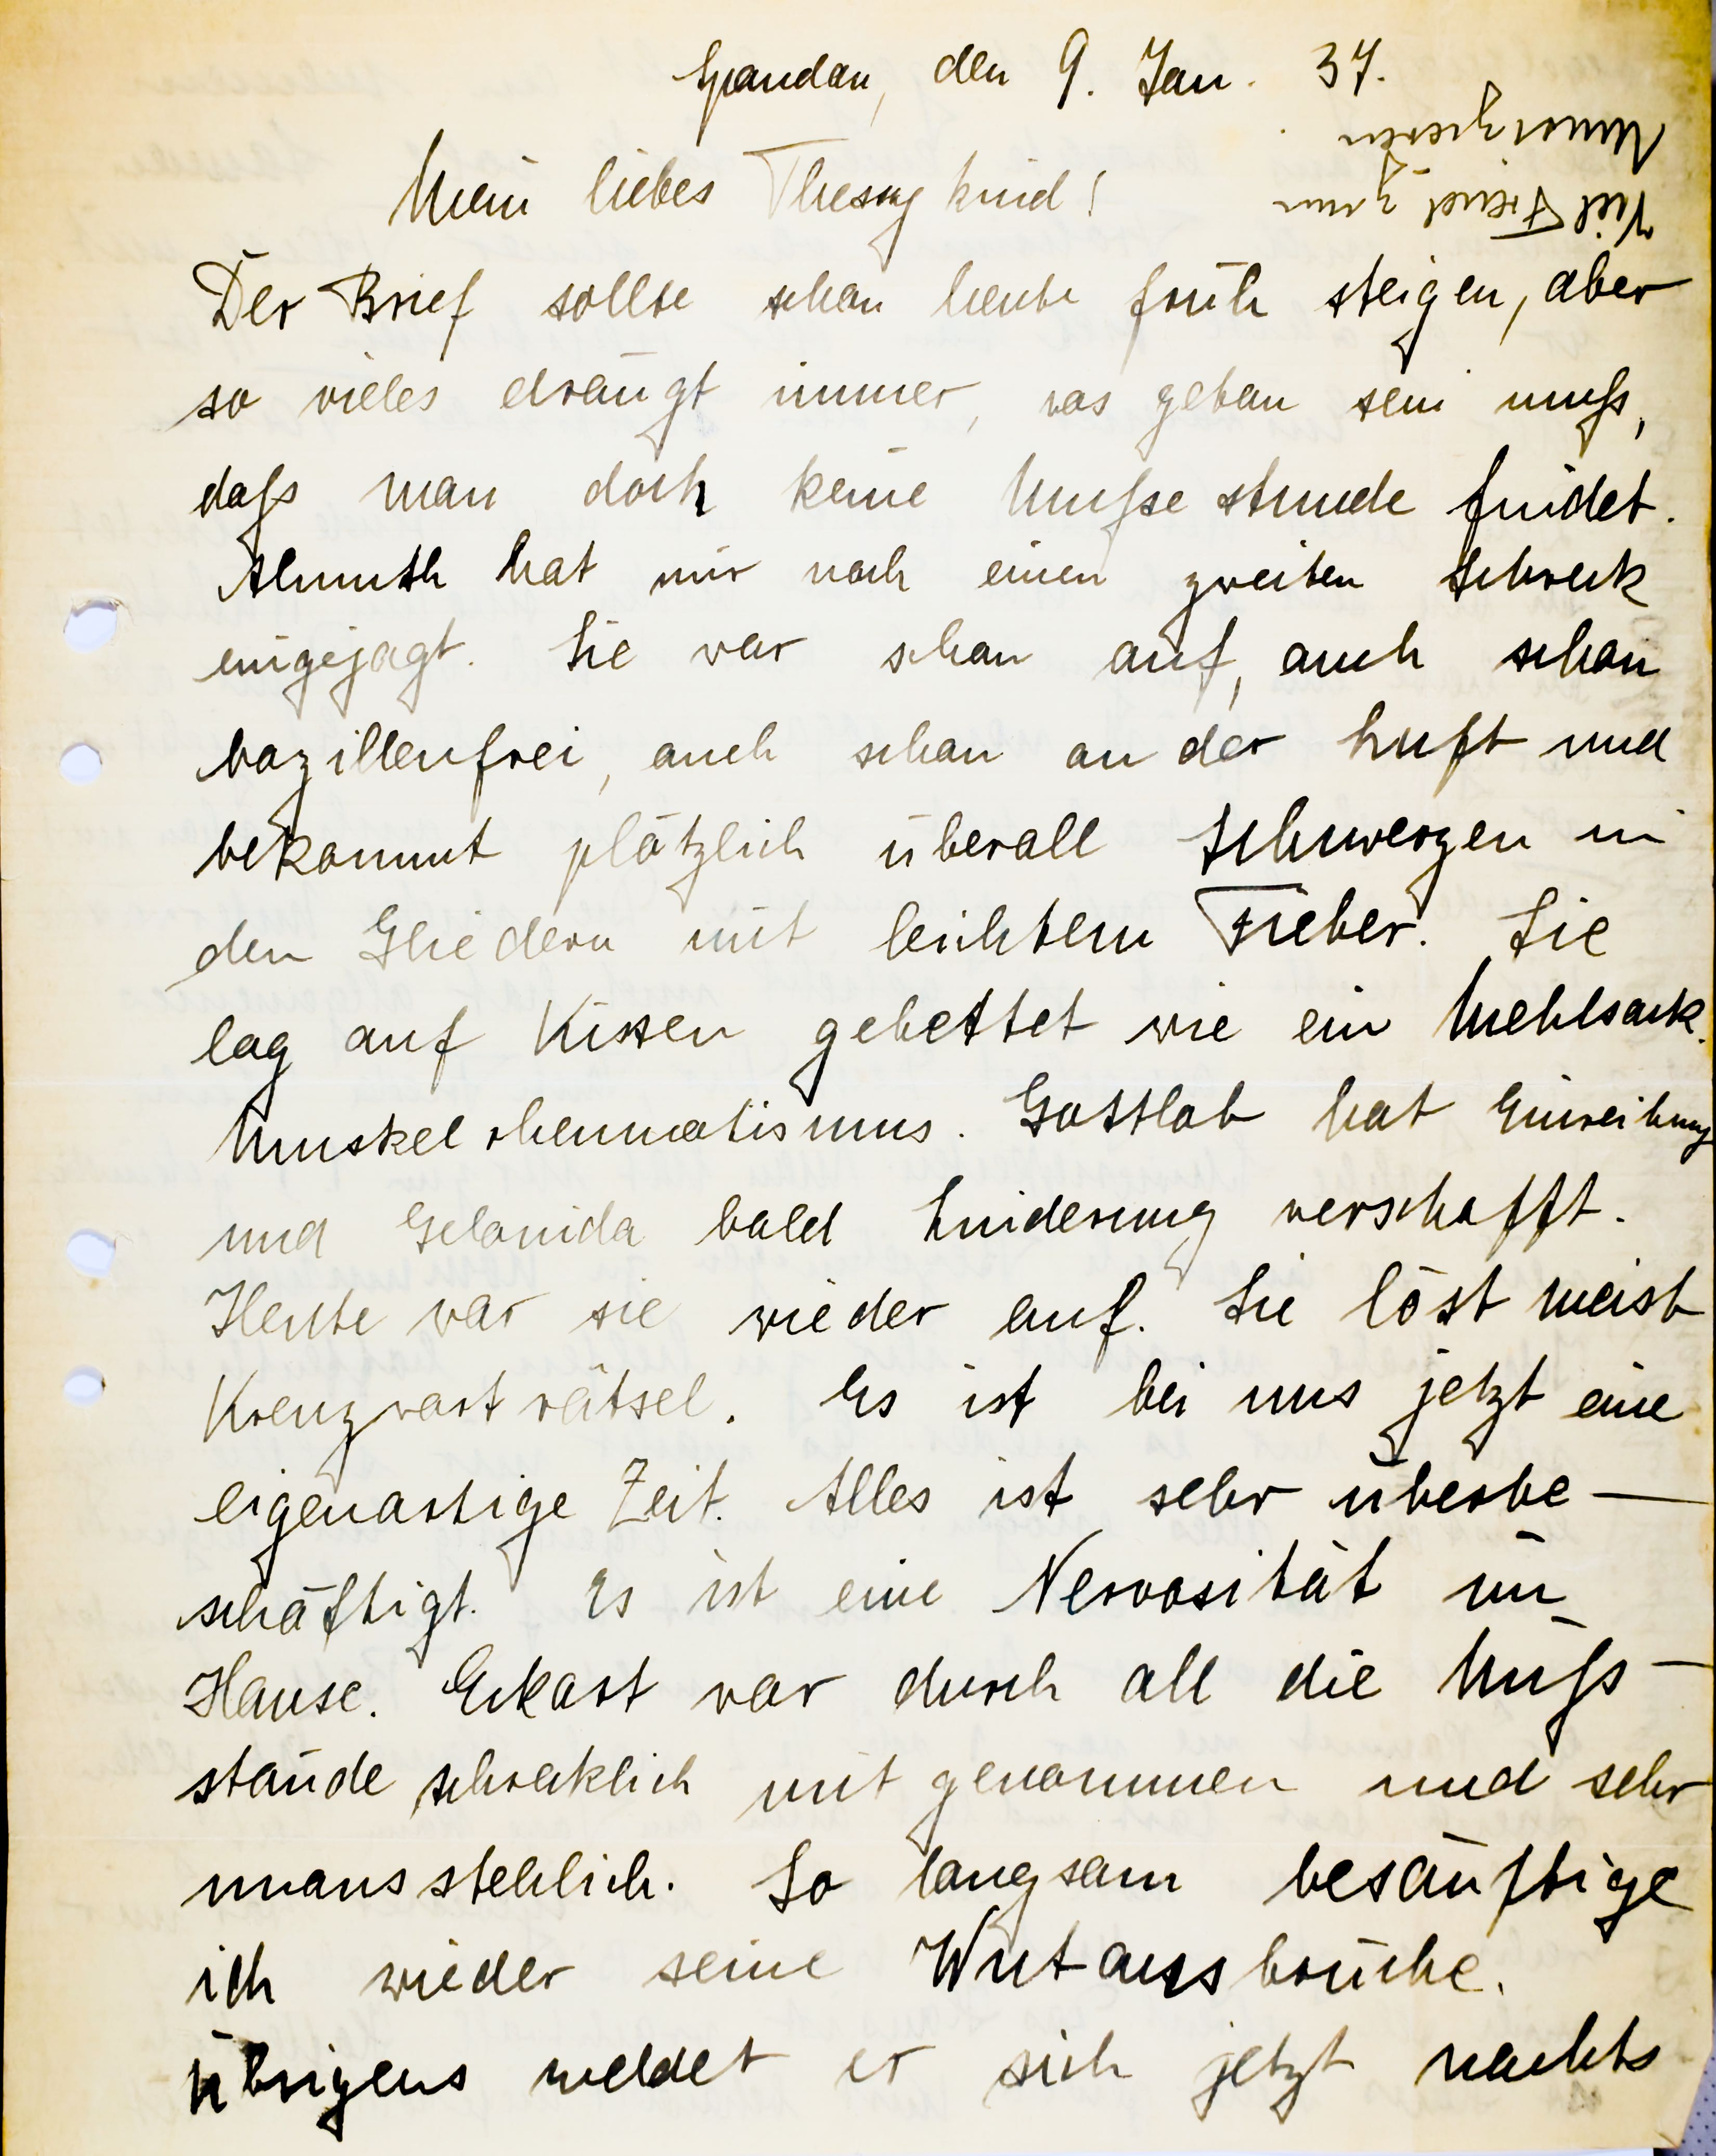 Spandau, den 9. Jan. 37.
Viel Freud zum
Musizieren
Mein liebes Thesingkind!
Der Brief sollte schon heute früh steigen, aber
so vieles drängt immer, was getan sein muß,
daß man doch keine Mußestunde findet.
Almuth hat mir noch einen zweiten Schreck
eingejagt. Sie war schon auf, auch schon
bazillenfrei, auch schon an der Luft und
bekommt plötzlich überall Schmerzen in
den Gliedern mit leichtem Fieber. Sie
lag auf Kissen gebettet wie ein Mehlsack.
Muskelrheumatismus. Gottlob hat Einreibung
und Gelonida bald Linderung verschafft.
Heute war sie wieder auf. Sie löst meist
Kreuzworträtsel. Es ist bei uns jetzt eine
eigenartige Zeit. Alles ist sehr überbe-
schäftigt. Es ist eine Nervosität im
Hause. Eckart war durch all die Miß-
stände schrecklich mitgenommen und sehr
unausstehlich. So langsam besänftige
ich wieder seine Wutausbrüche.
Übrigens meldet er sich jetzt nachts